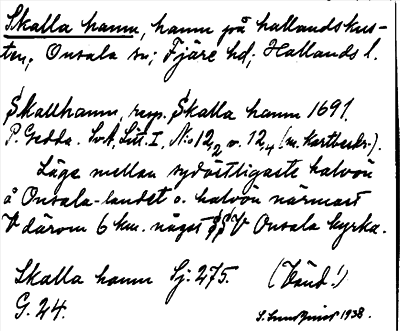 Skalla hamn, hamn på hallandskus-
ten, Onsala sn; Fjäre hd; Hallands l.
Skallhamn, resp. Skalla hamn 1691.
P. Gedda. SvA, Litt. I, No 12₂ o. 12₄ (m. Kartbeskr.).
Läge mellan sydöstligaste halvön
å Onsala-landet o. halvön närmast
V därom 6 km. något SSV Onsala kyrka.
Skalla hamn Sj. 275. (Vänd!)
G. 24. 1938.